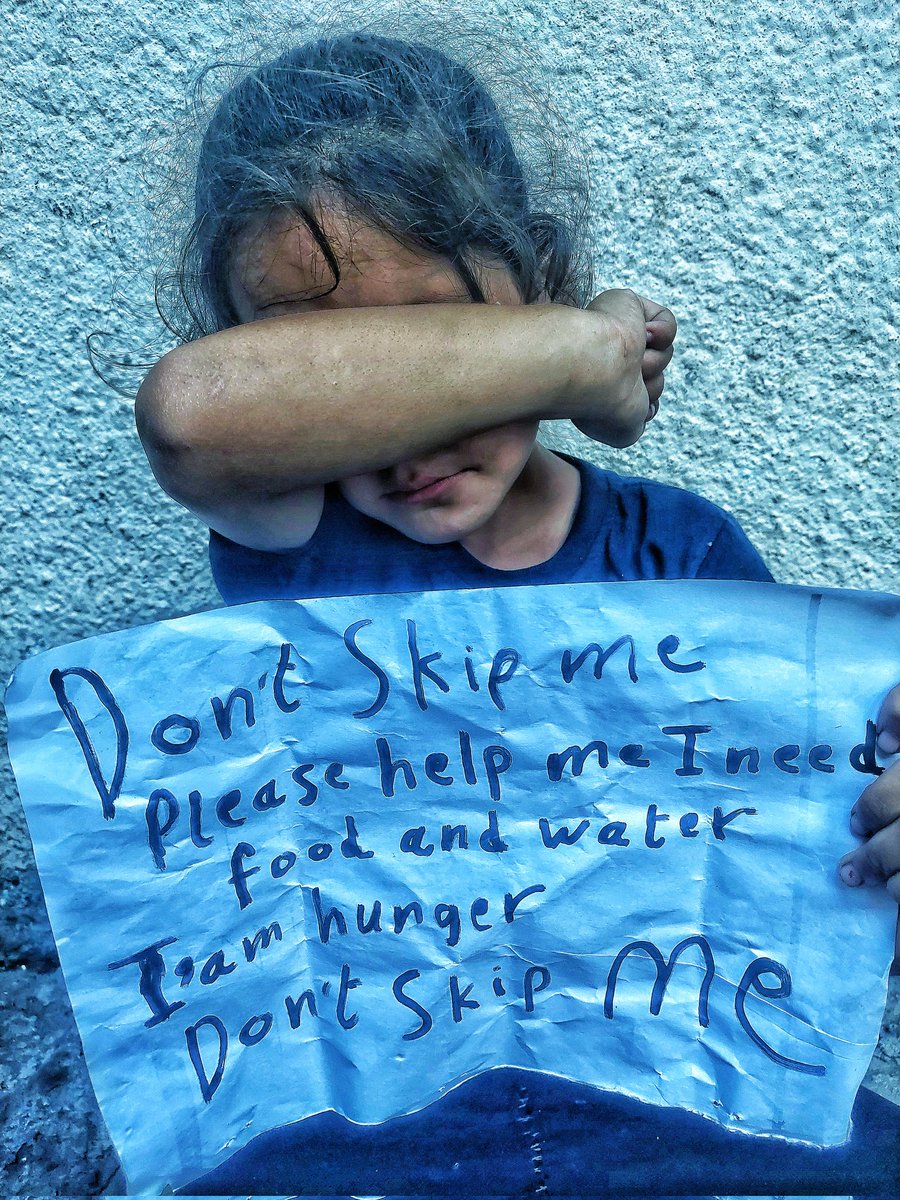 Don't Skip me
Please help me I need
food and water
I'am hunger
Don't Skip Me